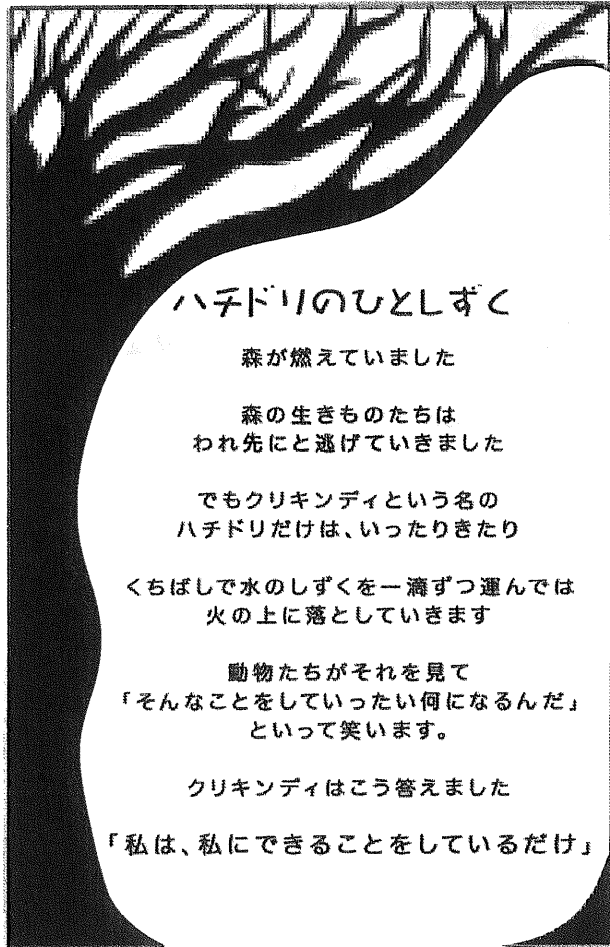 ハチドリのひとしずく
森が燃えていました
森の生きものたちは
われ先にと逃げていきました
でもクリキンディという名の
ハチドリだけは、いったりきたり
くちばしで水のしずくを一滴ずつ運んでは
火の上に落としていきます
動物たちがそれを見て
「そんなことをしていったい何になるんだ」
といって笑います。
クリキンディはこう答えました
「私は、私にできることをしているだけ」